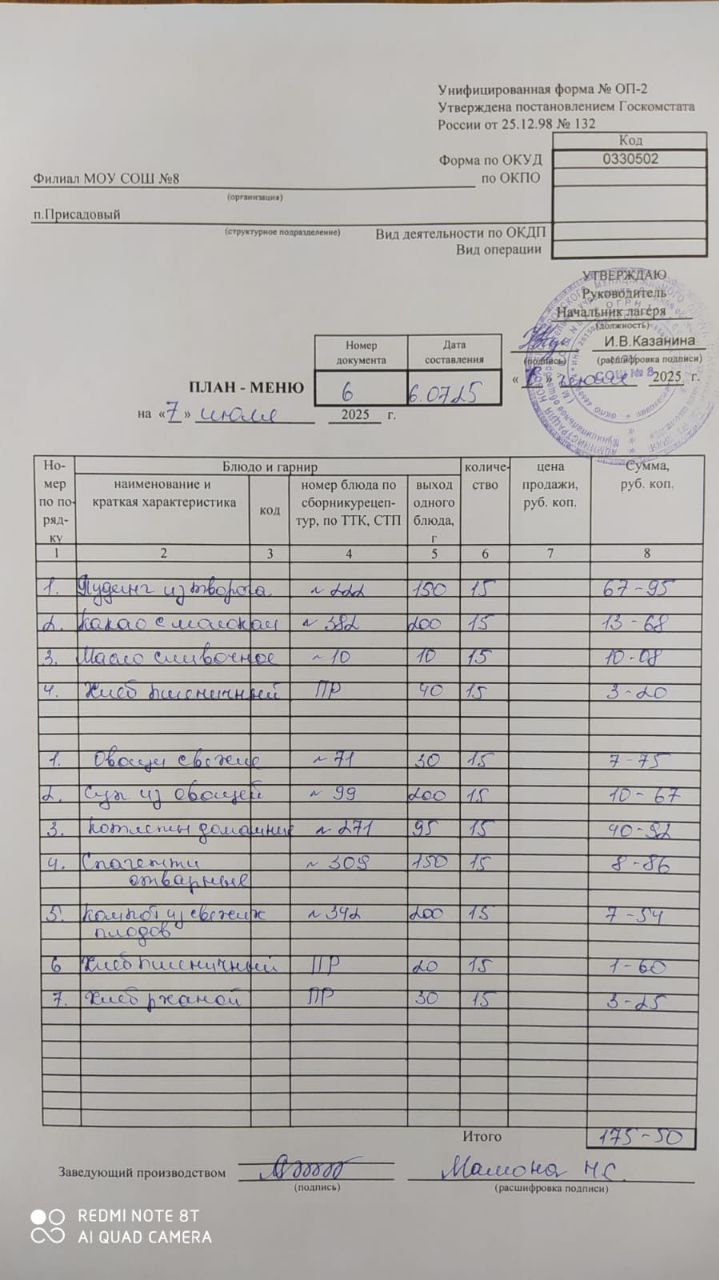 Унифицированная форма № ОП-2
Утверждена постановлением Госкомстата
России от 25.12.98 № 132
Код
Форма по ОКУД 0330502
Филиал МОУ СОШ №8 по ОКПО
(организация)
п.Присадовый
(структурное подразделение) Вид деятельности по ОКДП
Вид операции
УТВЕРЖДАЮ
Руководитель
Начальник лагеря
(должность)
И.В.Казанина
(подпись) (расшифровка подписи)
« 6 » июля 2025 г.
Номер документа Дата составления
ПЛАН - МЕНЮ 6 6.0725
на «7» июля 2025 г.
Но-мер по по-ряд-ку Блюдо и гарнир количе-ство цена продажи, руб. коп. Сумма, руб. коп.
наименование и краткая характеристика код номер блюда по сборникурецеп-тур, по ТТК, СТП выход одного блюда, г
1 2 3 4 5 6 7 8
1. Пудинг из творога ~222 150 15 67-95
2. Какао с молоком ~382 200 15 13-68
3. Масло сливочное ~10 10 15 10-08
4. Хлеб пшеничный ПР 40 15 3-20
1. Овощи свежие ~71 30 15 7-75
2. Суп из овощей ~99 200 15 10-67
3. Котлеты домашние ~271 95 15 40-92
4. Спагетти ~309 150 15 8-86
отварные
5. Компот из свежих ~342 200 15 7-54
плодов
6 Хлеб пшеничный ПР 20 15 1-60
7. Хлеб ржаной ПР 30 15 3-25
Итого 175-50
Заведующий производством Мамона Н.С.
(подпись) (расшифровка подписи)
REDMI NOTE 8T
AI QUAD CAMERA